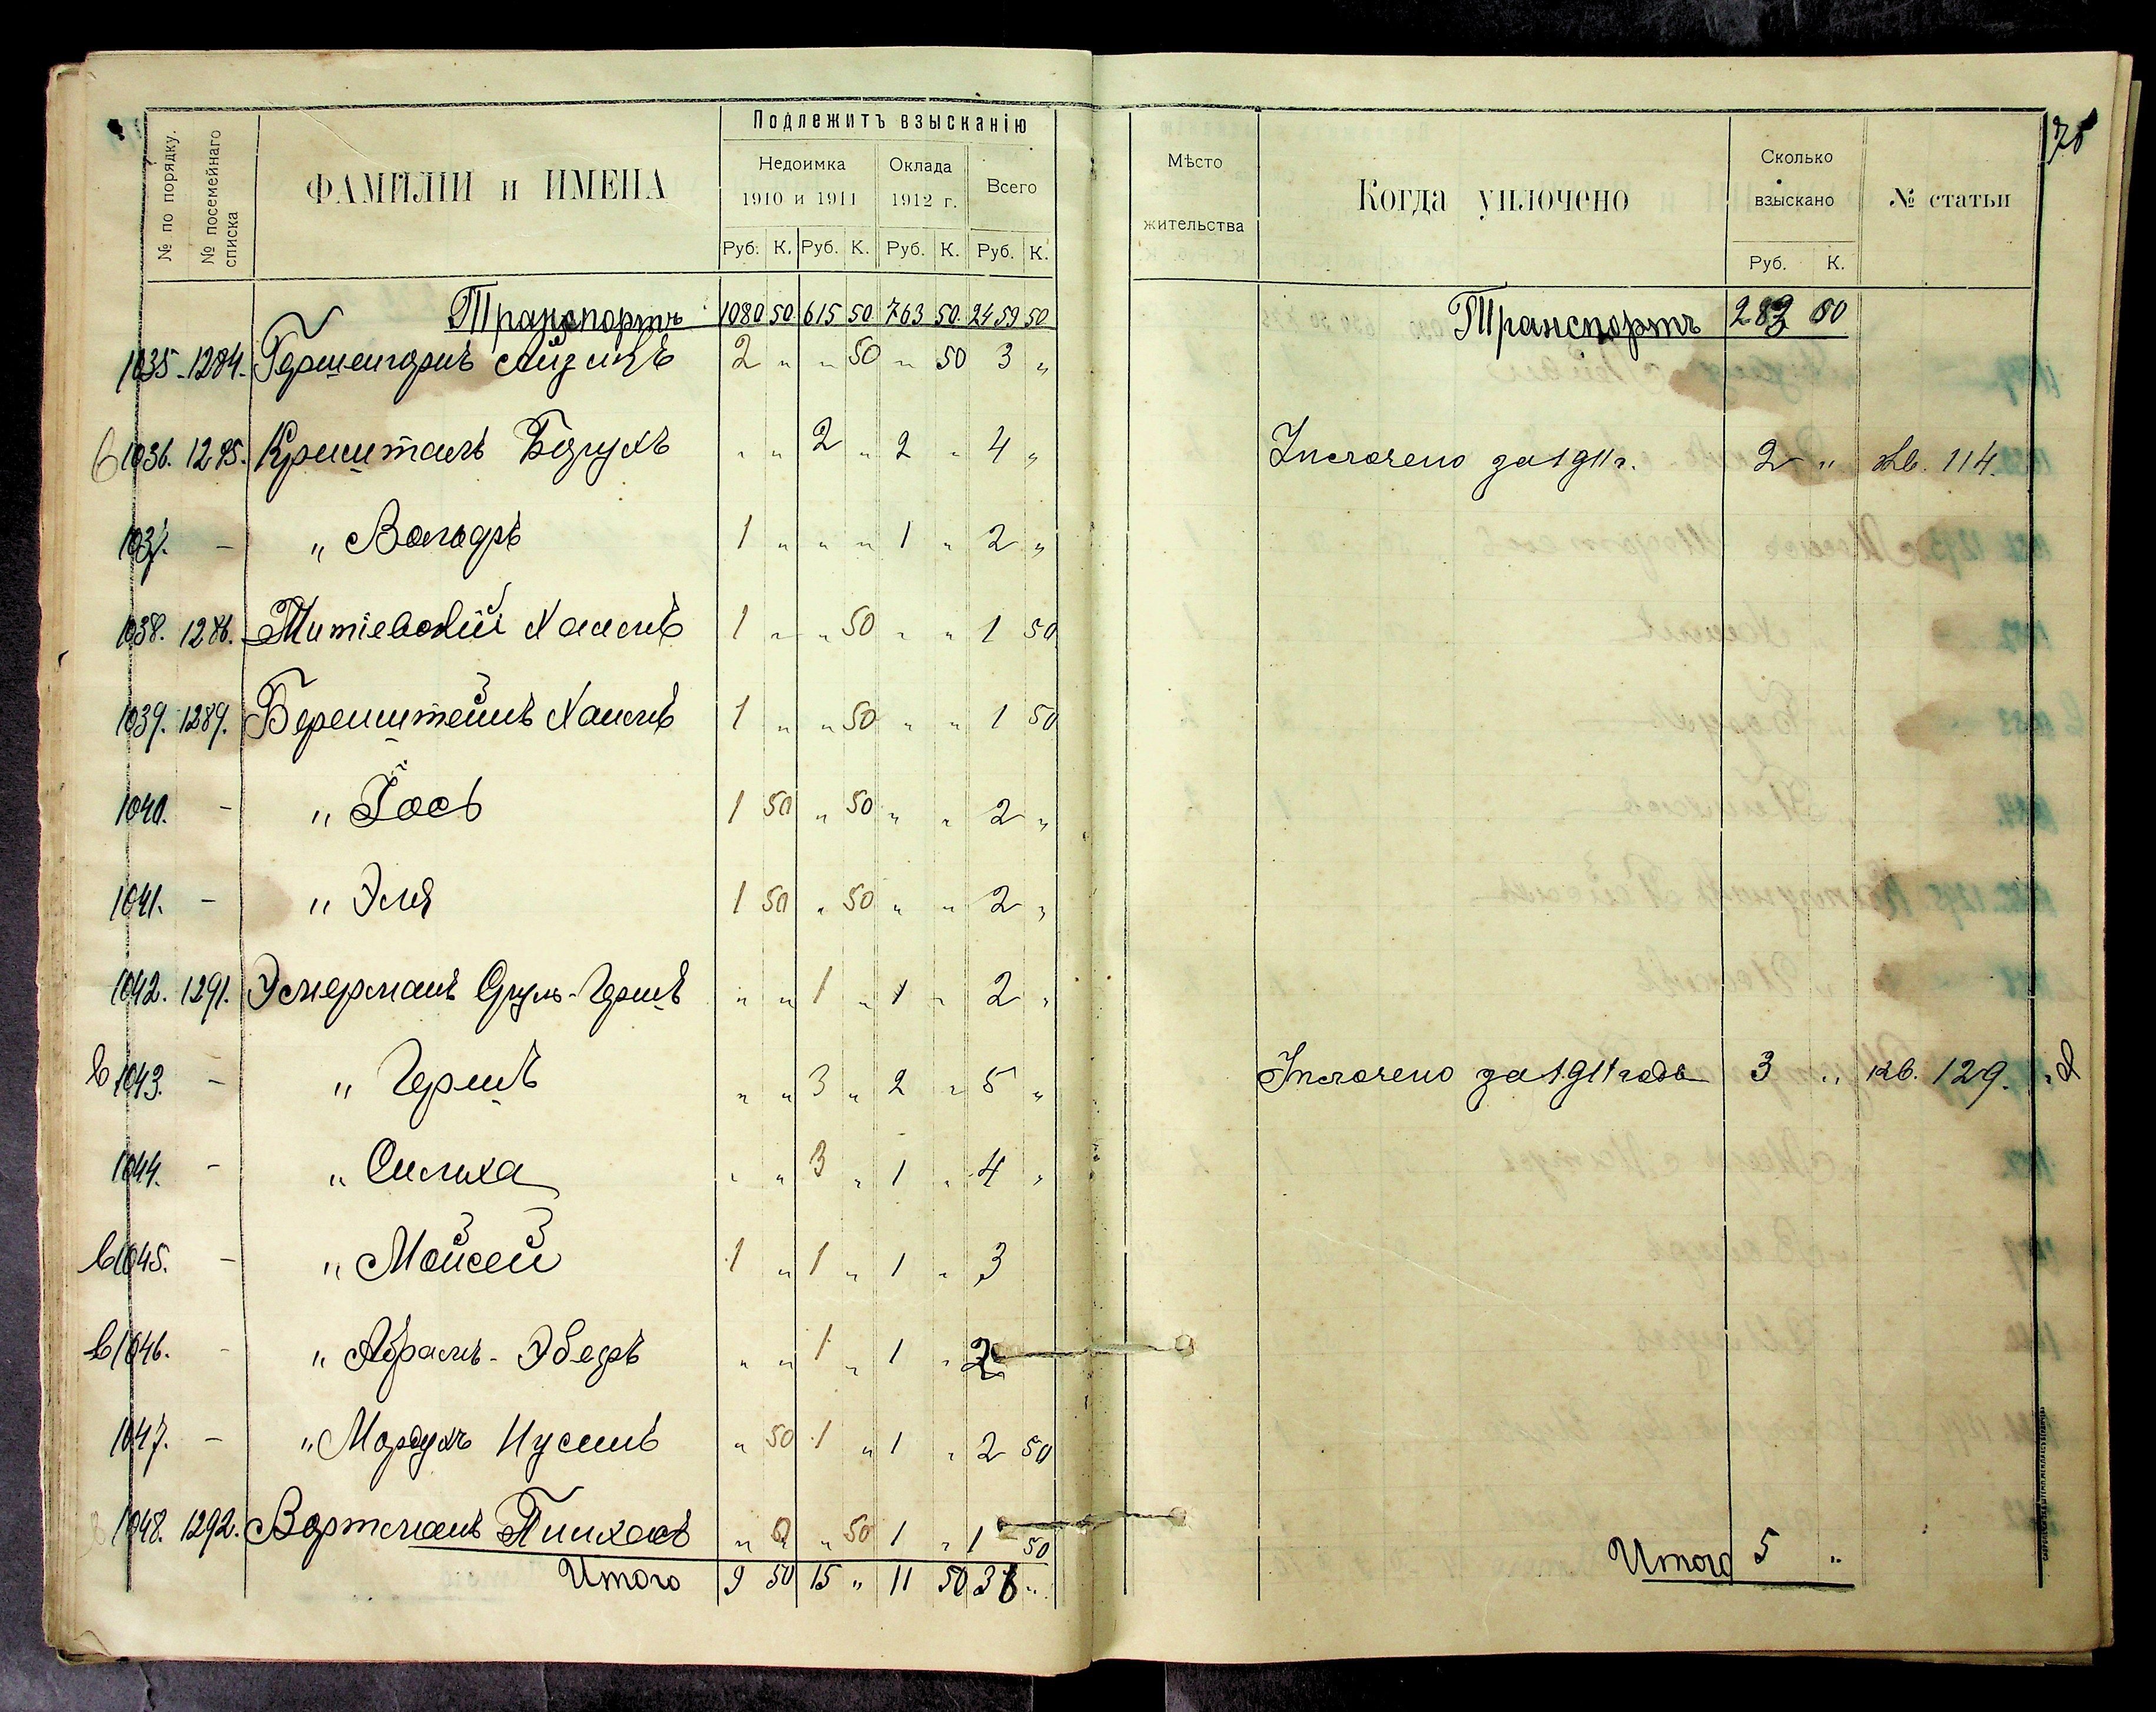 № по порядку.
№ посемейнаго списка
ФАМИЛІИ и ИМЕНА
Подлежитъ взысканію
Недоимка 1910 и 1911
Оклада 1912 г.
Всего
Руб. К. Руб. К. Руб. К. Руб. К.
Мѣсто жительства
Когда уплочено
Сколько взыскано
Руб. К.
№ статьи
Транспортъ 1080 50 615 50 763 50 2459 50
1035. 1284. Герценгорнъ Айзикъ 2 " " 50 " 50 3 "
1036. 1285. Кришталъ Борухъ " " 2 " 2 " 4 "
1037. - " Володръ 1 " " " 1 " 2 "
1038. 1286. Митіевскій Хаимъ 1 " " 50 " " 1 50
1039. 1289. Беренштейнъ Хаимъ 1 " " 50 " " 1 50
1040. - " Іосъ 1 50 " 50 " " 2 "
1041. - " Эля 1 50 " 50 " " 2 "
1042. 1291. Эльерманъ Сруль-Гершъ " " 1 " 1 " 2 "
в 1043. - " Гершъ " " 3 " 2 " 5 "
1044. - " Симха " " 3 " 1 " 4 "
в 1045. - " Мойсей 1 " 1 " 1 " 3
в 1046. - " Абрамъ- " " 1 " 1 " 2
1047. - " Мордухъ Нусинъ " 50 1 " 1 " 2 50
1048. 1292. Вортманъ Пинхасъ " " " 50 1 " 1 50
Итого 9 50 15 " 11 50 36 "
Транспортъ 50
Уплочено за 1911 г. 2 " кв. 114.
Уплочено за 1911 годъ 3 " кв. 129.
Итого 5 "